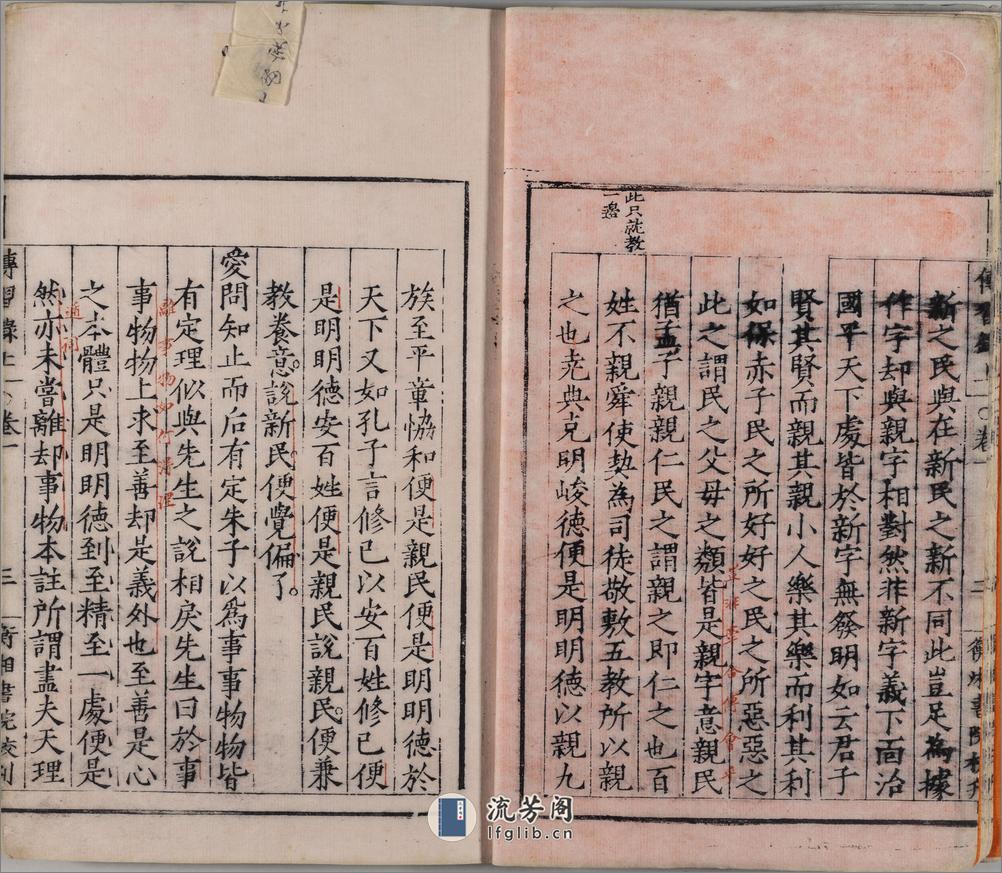 此只説教
一邊
新之民與在新民之新不同此豈足為據
作字却與親字相對然非新字義下面治
國平天下處皆於新字無發明如云君子
賢其賢而親其親小人樂其樂而利其利
如保赤子民之所好好之民之所惡惡之
此之謂民之父母之類皆是親字意親民
猶孟子親親仁民之謂親之即仁之也百
姓不親舜使契為司徒敬敷五教所以親
之也尭典克明峻徳便是明明徳以親九
族至平章恊和便是親民便是明明徳於
天下又如孔子言修己以安百姓修己便
是明明徳安百姓便是親民說親民便兼
教養意說新民便覺偏了
愛問知止而后有定朱子以爲事事物物皆
有定理似與先生之說相戾先生曰於事
事物物上求至善却是義外也至善是心
之本體只是明明徳到至精至一處便是
然亦未嘗離却事物本註所謂盡夫天理
傳習錄上
卷一
三
衡湘書院
流芳阁
lfglib.cn